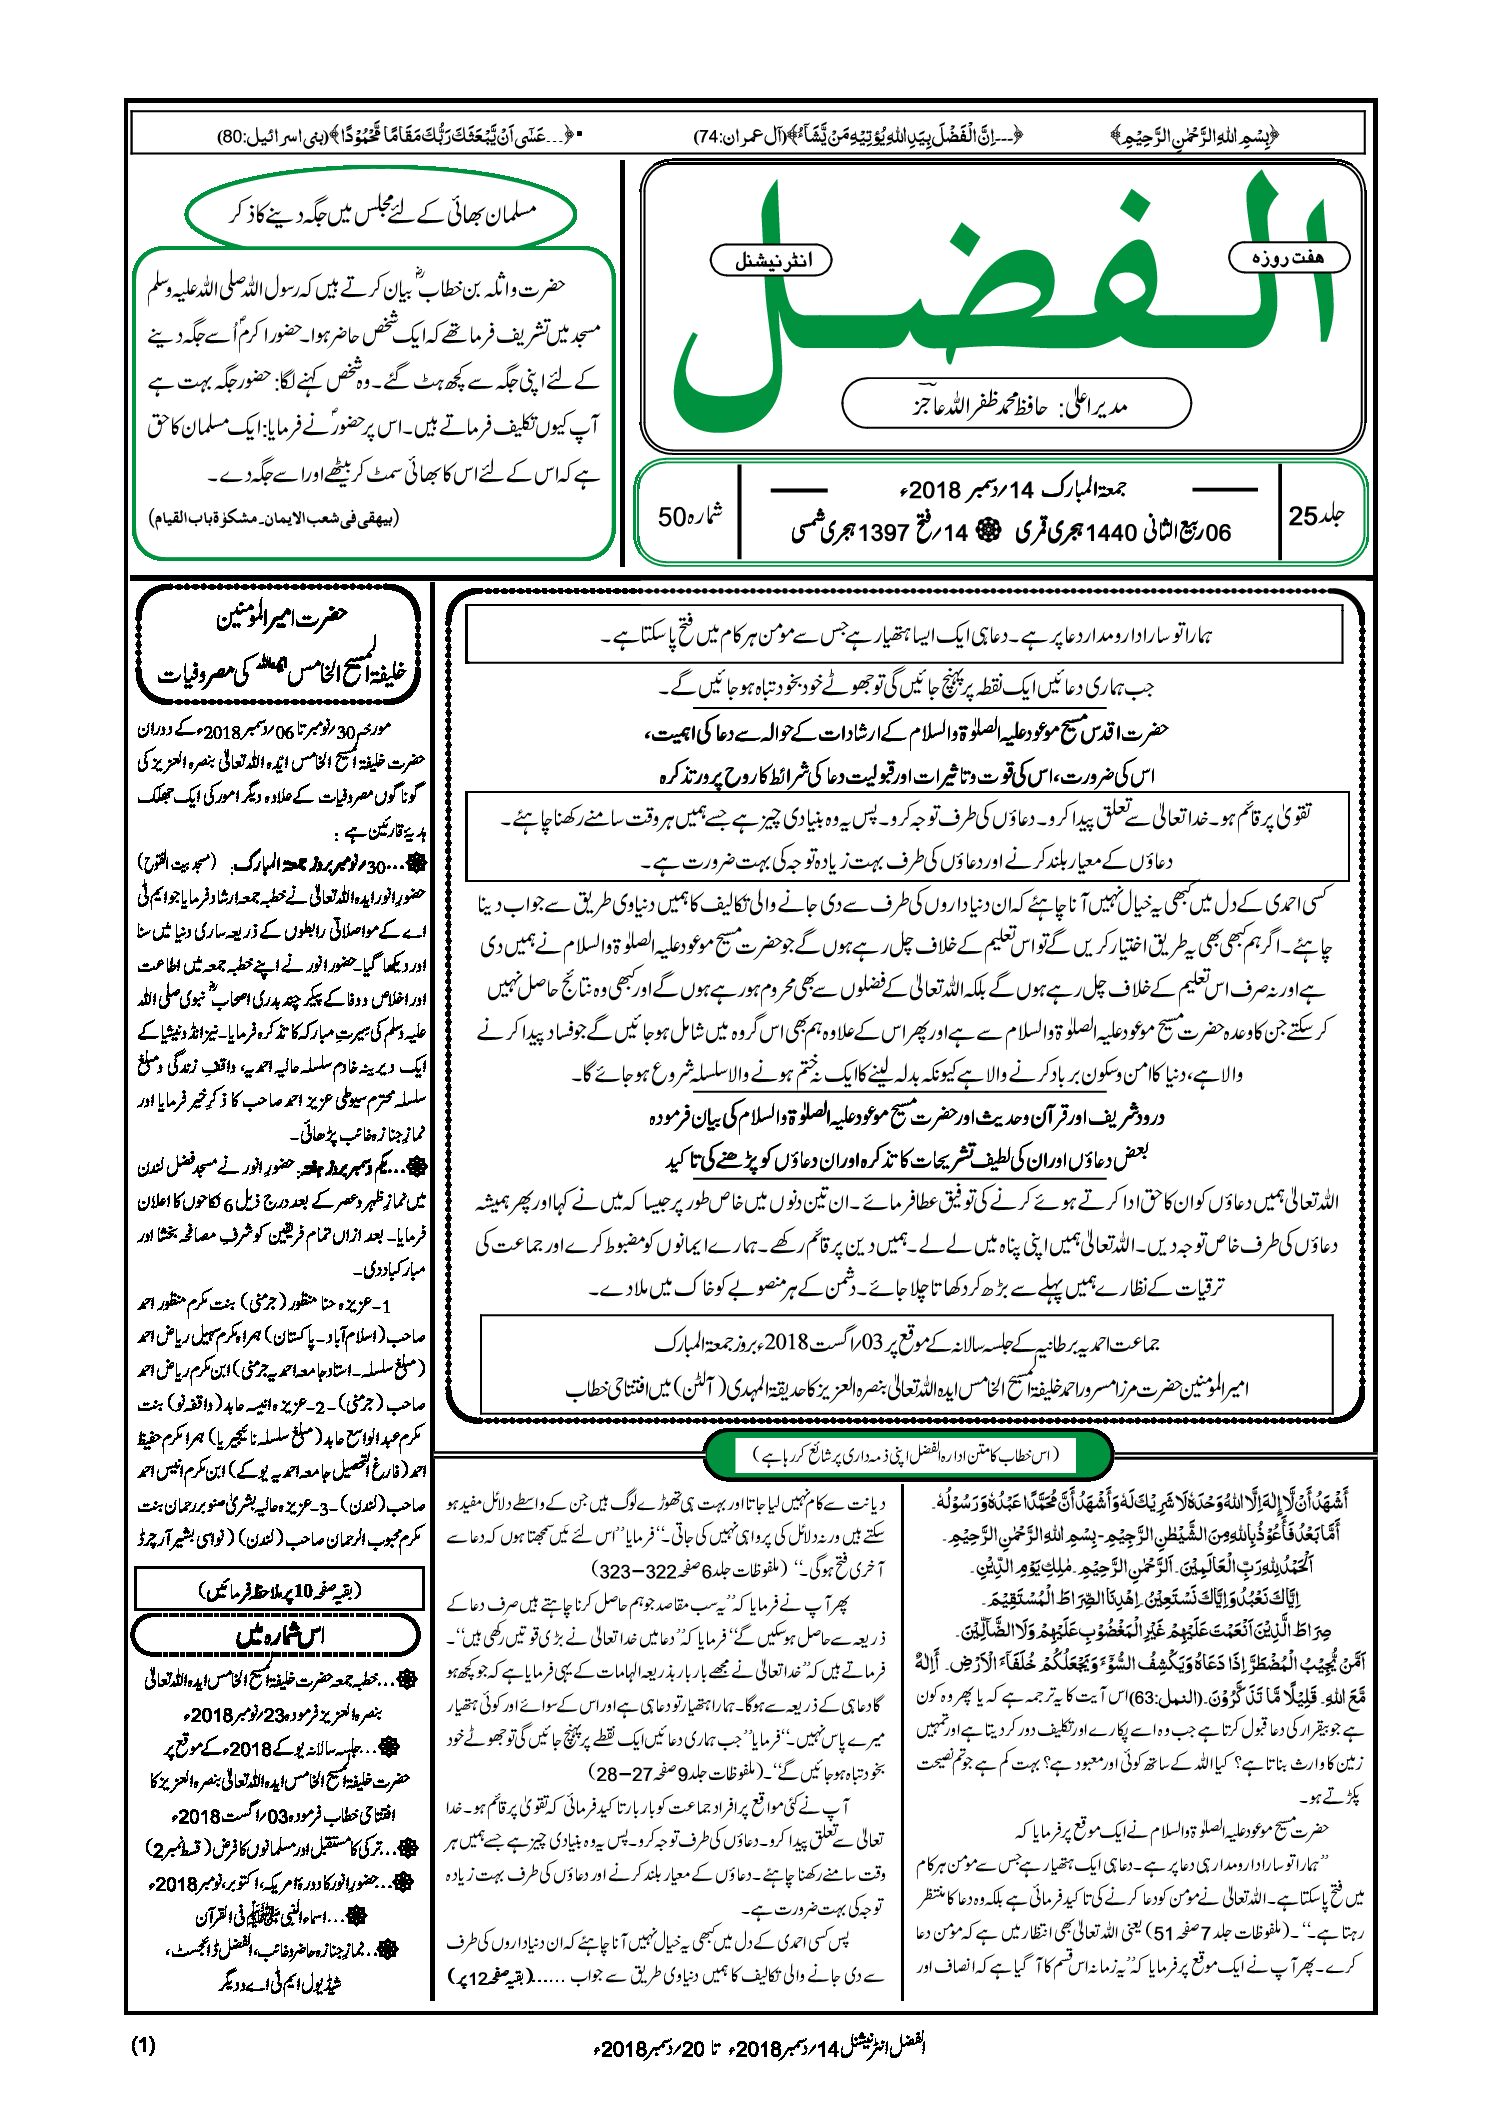 ﴿بِسْمِ اللهِ الرَّحْمٰنِ الرَّحِيْمِ﴾
﴿۔۔۔اِنَّ الْفَضْلَ بِيَدِ اللهِ يُؤْتِيْهِ مَنْ يَّشَآءُ﴾(آل عمران:74)
﴿۔۔۔عَسٰى اَنْ يَّبْعَثَكَ رَبُّكَ مَقَامًا مَّحْمُوْدًا﴾(بنی اسرائیل:80)
الفضل
ہفت روزہ
انٹرنیشنل
مدیر اعلیٰ: حافظ محمد ظفر اللہ عاجزؔ
جلد 25
جمعۃ المبارک 14؍دسمبر 2018ء
06 ربیع الثانی 1440 ہجری قمری ۞ 14؍فتح 1397 ہجری شمسی
شمارہ 50
مسلمان بھائی کے لئے مجلس میں جگہ دینے کا ذکر
حضرت واثلہ بن خطابؓ بیان کرتے ہیں کہ رسول اللہ صلی اللہ علیہ وسلم
مسجد میں تشریف فرما تھے کہ ایک شخص حاضر ہوا۔ حضور اکرمؐ اُسے جگہ دینے
کے لئے اپنی جگہ سے کچھ ہٹ گئے۔ وہ شخص کہنے لگا: حضور جگہ بہت ہے
آپ کیوں تکلیف فرماتے ہیں۔ اس پر حضورؐ نے فرمایا: ایک مسلمان کا حق
ہے کہ اس کے لئے اس کا بھائی سمٹ کر بیٹھے اور اسے جگہ دے۔
(بیهقی فی شعب الایمان۔ مشکوٰة باب القیام)
ہمارا تو سارا دارومدار دعا پر ہے۔ دعا ہی ایک ایسا ہتھیار ہے جس سے مومن ہر کام میں فتح پا سکتا ہے۔
جب ہماری دعائیں ایک نقطہ پر پہنچ جائیں گی تو جھوٹے خود بخود تباہ ہو جائیں گے۔
حضرت اقدس مسیح موعود علیہ الصلوٰۃ والسلام کے ارشادات کے حوالہ سے دعا کی اہمیت،
اس کی ضرورت، اس کی قوت و تاثیرات اور قبولیت دعا کی شرائط کا روح پرور تذکرہ
تقویٰ پر قائم ہو۔ خدا تعالیٰ سے تعلق پیدا کرو۔ دعاؤں کی طرف توجہ کرو۔ پس یہ وہ بنیادی چیز ہے جسے ہمیں ہر وقت سامنے رکھنا چاہئے۔
دعاؤں کے معیار بلند کرنے اور دعاؤں کی طرف بہت زیادہ توجہ کی بہت ضرورت ہے۔
کسی احمدی کے دل میں کبھی یہ خیال نہیں آنا چاہئے کہ ان دنیاداروں کی طرف سے دی جانے والی تکالیف کا ہمیں دنیاوی طریق سے جواب دینا
چاہئے۔ اگر ہم کبھی بھی یہ طریق اختیار کریں گے تو اس تعلیم کے خلاف چل رہے ہوں گے جو حضرت مسیح موعود علیہ الصلوٰۃ والسلام نے ہمیں دی
ہے اور نہ صرف اس تعلیم کے خلاف چل رہے ہوں گے بلکہ اللہ تعالیٰ کے فضلوں سے بھی محروم ہو رہے ہوں گے اور کبھی وہ نتائج حاصل نہیں
کر سکتے جن کا وعدہ حضرت مسیح موعود علیہ الصلوٰۃ والسلام سے ہے اور پھر اس کے علاوہ ہم بھی اس گروہ میں شامل ہو جائیں گے جو فساد پیدا کرنے
والا ہے، دنیا کا امن و سکون برباد کرنے والا ہے کیونکہ بدلہ لینے کا ایک نہ ختم ہونے والا سلسلہ شروع ہو جائے گا۔
درود شریف اور قرآن و حدیث اور حضرت مسیح موعود علیہ الصلوٰۃ والسلام کی بیان فرمودہ
بعض دعاؤں اور ان کی لطیف تشریحات کا تذکرہ اور ان دعاؤں کو پڑھنے کی تاکید
اللہ تعالیٰ ہمیں دعاؤں کو ان کا حق ادا کرتے ہوئے کرنے کی توفیق عطا فرمائے۔ ان تین دنوں میں خاص طور پر جیسا کہ میں نے کہا اور پھر ہمیشہ
دعاؤں کی طرف خاص توجہ دیں۔ اللہ تعالیٰ ہمیں اپنی پناہ میں لے لے۔ ہمیں دین پر قائم رکھے۔ ہمارے ایمانوں کو مضبوط کرے اور جماعت کی
ترقیات کے نظارے ہمیں پہلے سے بڑھ کر دکھاتا چلا جائے۔ دشمن کے ہر منصوبے کو خاک میں ملا دے۔
جماعت احمدیہ برطانیہ کے جلسہ سالانہ کے موقع پر 03؍اگست 2018ء بروز جمعۃ المبارک
امیر المومنین حضرت مرزا مسرور احمد خلیفۃ المسیح الخامس ایدہ اللہ تعالیٰ بنصرہ العزیز کا حدیقۃ المہدی (آلٹن) میں افتتاحی خطاب
(اس خطاب کا متن ادارہ الفضل اپنی ذمہ داری پر شائع کر رہا ہے)
اَشْهَدُ اَنْ لَّا اِلٰهَ اِلَّا اللهُ وَحْدَهٗ لَا شَرِيْكَ لَهٗ وَاَشْهَدُ اَنَّ مُحَمَّدًا عَبْدُهٗ وَرَسُوْلُهٗ۔
اَمَّا بَعْدُ فَاَعُوْذُ بِاللهِ مِنَ الشَّيْطٰنِ الرَّجِيْمِ۔ بِسْمِ اللهِ الرَّحْمٰنِ الرَّحِيْمِ۔
اَلْحَمْدُ لِلهِ رَبِّ الْعَالَمِيْنَ۔ اَلرَّحْمٰنِ الرَّحِيْمِ۔ مٰلِكِ يَوْمِ الدِّيْنِ۔
اِيَّاكَ نَعْبُدُ وَاِيَّاكَ نَسْتَعِيْنُ۔ اِهْدِنَا الصِّرَاطَ الْمُسْتَقِيْمَ۔
صِرَاطَ الَّذِيْنَ اَنْعَمْتَ عَلَيْهِمْ غَيْرِ الْمَغْضُوْبِ عَلَيْهِمْ وَلَا الضَّآلِّيْنَ۔
اَمَّنْ يُّجِيْبُ الْمُضْطَرَّ اِذَا دَعَاهُ وَيَكْشِفُ السُّوْٓءَ وَيَجْعَلُكُمْ خُلَفَآءَ الْاَرْضِ۔ ءَاِلٰهٌ
مَّعَ اللهِ۔ قَلِيْلًا مَّا تَذَكَّرُوْنَ۔(النمل:63) اس آیت کا یہ ترجمہ ہے کہ یا پھر وہ کون
ہے جو بیقرار کی دعا قبول کرتا ہے جب وہ اسے پکارے اور تکلیف دور کر دیتا ہے اور تمہیں
زمین کا وارث بناتا ہے؟ کیا اللہ کے ساتھ کوئی اور معبود ہے؟ بہت کم ہے جو تم نصیحت
پکڑتے ہو۔
حضرت مسیح موعود علیہ الصلوٰۃ والسلام نے ایک موقع پر فرمایا کہ
’’ہمارا تو سارا دارومدار ہی دعا پر ہے۔ دعا ہی ایک ہتھیار ہے جس سے مومن ہر کام
میں فتح پا سکتا ہے۔ اللہ تعالیٰ نے مومن کو دعا کرنے کی تاکید فرمائی ہے بلکہ وہ دعا کا منتظر
رہتا ہے۔‘‘۔ (ملفوظات جلد 7 صفحہ 51) یعنی اللہ تعالیٰ بھی انتظار میں ہے کہ مومن دعا
کرے۔ پھر آپ نے ایک موقع پر فرمایا کہ ’’یہ زمانہ اس قسم کا آ گیا ہے کہ انصاف اور
دیانت سے کام نہیں لیا جاتا اور بہت ہی تھوڑے لوگ ہیں جن کے واسطے دلائل مفید ہو
سکتے ہیں ورنہ دلائل کی پرواہی نہیں کی جاتی۔‘‘ فرمایا ’’اس لئے مَیں سمجھتا ہوں کہ دعا سے
آخری فتح ہوگی۔‘‘ (ملفوظات جلد 6 صفحہ 322-323)
پھر آپ نے فرمایا کہ ’’یہ سب مقاصد جو ہم حاصل کرنا چاہتے ہیں صرف دعا کے
ذریعہ سے حاصل ہو سکیں گے‘‘ فرمایا کہ ’’دعا میں خدا تعالیٰ نے بڑی قوتیں رکھی ہیں‘‘۔
فرماتے ہیں کہ ’’خدا تعالیٰ نے مجھے بار بار بذریعہ الہامات کے یہی فرمایا ہے کہ جو کچھ ہو
گا دعا ہی کے ذریعہ سے ہوگا۔ ہمارا ہتھیار تو دعا ہی ہے اور اس کے سوائے اور کوئی ہتھیار
میرے پاس نہیں۔‘‘ فرمایا ’’جب ہماری دعائیں ایک نقطے پر پہنچ جائیں گی تو جھوٹے خود
بخود تباہ ہو جائیں گے‘‘۔ (ملفوظات جلد 9 صفحہ 27-28)
آپ نے کئی مواقع پر افراد جماعت کو بار بار تاکید فرمائی کہ تقویٰ پر قائم ہو۔ خدا
تعالیٰ سے تعلق پیدا کرو۔ دعاؤں کی طرف توجہ کرو۔ پس یہ وہ بنیادی چیز ہے جسے ہمیں ہر
وقت سامنے رکھنا چاہئے۔ دعاؤں کے معیار بلند کرنے اور دعاؤں کی طرف بہت زیادہ
توجہ کی بہت ضرورت ہے۔
پس کسی احمدی کے دل میں کبھی یہ خیال نہیں آنا چاہئے کہ ان دنیاداروں کی طرف
سے دی جانے والی تکالیف کا ہمیں دنیاوی طریق سے جواب ......(بقیہ صفحہ 12 پر)
حضرت امیر المومنین
خلیفۃ المسیح الخامس ایدہ اللہ کی مصروفیات
مورخہ 30؍نومبر تا 06؍دسمبر 2018ء کے دوران
حضرت خلیفۃ المسیح الخامس ایّدہ اللہ تعالیٰ بنصرہ العزیز کی
گوناگوں مصروفیات کے علاوہ دیگر امور کی ایک جھلک
ہدیۂ قارئین ہے :
۞...30؍نومبر بروز جمعۃ المبارک: (مسجد بیت الفتوح)
حضورِ انور ایدہ اللہ تعالیٰ نے خطبہ جمعہ ارشاد فرمایا جو ایم ٹی
اے کے مواصلاتی رابطوں کے ذریعہ ساری دنیا میں سنا
اور دیکھا گیا۔ حضور انور نے اپنے خطبہ جمعہ میں اطاعت
اور اخلاص و وفا کے پیکر چند بدری اصحابؓ نبوی صلی اللہ
علیہ وسلم کی سیرت مبارکہ کا تذکرہ فرمایا۔ نیز انڈونیشیا کے
ایک دیرینہ خادم سلسلہ عالیہ احمدیہ، واقف زندگی و مبلغ
سلسلہ محترم سیوطی عزیز احمد صاحب کا ذکرِ خیر فرمایا اور
نمازِ جنازہ غائب پڑھائی۔
۞...یکم دسمبر بروز ہفتہ: حضورِ انور نے مسجد فضل لندن
میں نمازِ ظہر و عصر کے بعد درج ذیل 6 نکاحوں کا اعلان
فرمایا۔ بعد ازاں تمام فریقین کو شرفِ مصافحہ بخشا اور
مبارکباد دی۔
1-عزیزہ حنا منظور (جرمنی) بنت مکرم منظور احمد
صاحب (اسلام آباد۔ پاکستان) ہمراہ مکرم سہیل ریاض احمد
(مبلغ سلسلہ۔ استاد جامعہ احمدیہ جرمنی) ابن مکرم ریاض احمد
صاحب (جرمنی)۔ 2-عزیزہ انیسہ عابد (واقفہ نو) بنت
مکرم عبدالواسع عابد (مبلغ سلسلہ نائیجیریا) ہمراہ مکرم حفیظ
احمد (فارغ التحصیل جامعہ احمدیہ یوکے) ابن مکرم انیس احمد
صاحب (لندن)۔ 3-عزیزہ عالیہ بشریٰ صنوبر رحمان بنت
مکرم محبوب الرحمان صاحب (لندن) (نواسی بشیر آرچرڈ
(بقیہ صفحہ 10 پر ملاحظہ فرمائیں)
اس شمارہ میں
۞...خطبہ جمعہ حضرت خلیفۃ المسیح الخامس ایدہ اللہ تعالیٰ
بنصرہ العزیز فرمودہ 23؍نومبر 2018ء
۞...جلسہ سالانہ یوکے 2018ء کے موقع پر
حضرت خلیفۃ المسیح الخامس ایدہ اللہ تعالیٰ بنصرہ العزیز کا
افتتاحی خطاب فرمودہ 03؍اگست 2018ء
۞...ترکی کا مستقبل اور مسلمانوں کا فرض (قسط نمبر 2)
۞...حضورِ انور کا دورۂ امریکہ، اکتوبر، نومبر 2018ء
۞...اسماء النبی ﷺ فی القرآن
۞...نمازِ جنازہ حاضر و غائب، الفضل ڈائجسٹ،
شیڈیول ایم ٹی اے و دیگر
الفضل انٹرنیشنل 14؍دسمبر 2018ء تا 20؍دسمبر 2018ء
(1)